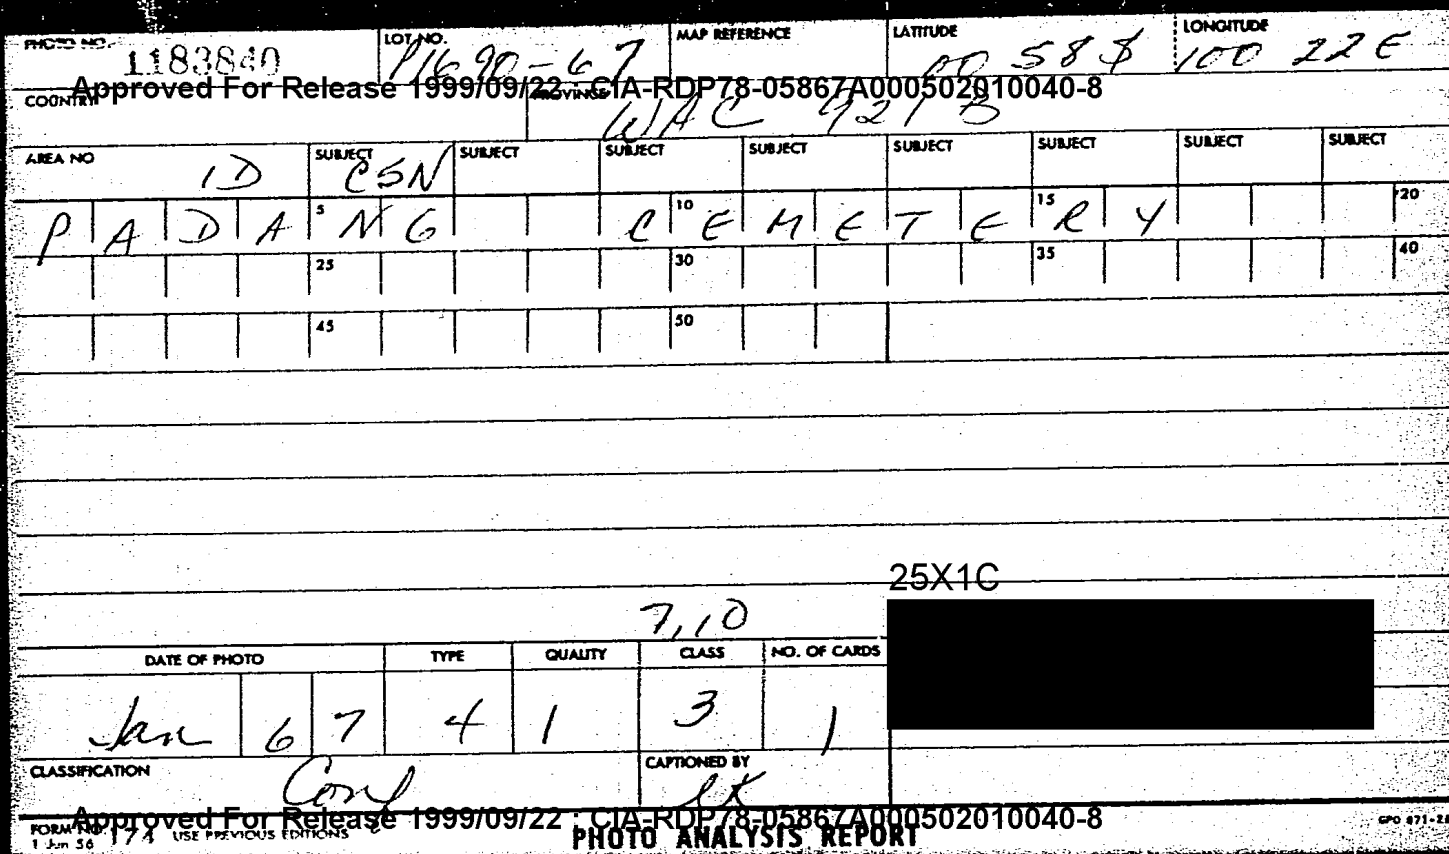 PHOTO NO. 1183840 LOT NO. P1690-67 MAP REFERENCE LATITUDE 00 58 S LONGITUDE 100 22 E
Approved For Release 1999/09/22 : CIA-RDP78-05867A000502010040-8
COUNTRY PROVINCE WAC 921 B
AREA NO ID SUBJECT CSN SUBJECT SUBJECT SUBJECT SUBJECT SUBJECT SUBJECT SUBJECT
PADANG CEMETERY 5 10 15 20
25 30 35 40
45 50
25X1C
7,10
DATE OF PHOTO TYPE QUALITY CLASS NO. OF CARDS
Jan 67 4 1 3 1
CLASSIFICATION Conf CAPTIONED BY
Approved For Release 1999/09/22 : CIA-RDP78-05867A000502010040-8
FORM NO. 17A USE PREVIOUS EDITIONS PHOTO ANALYSIS REPORT
1 Jun 56